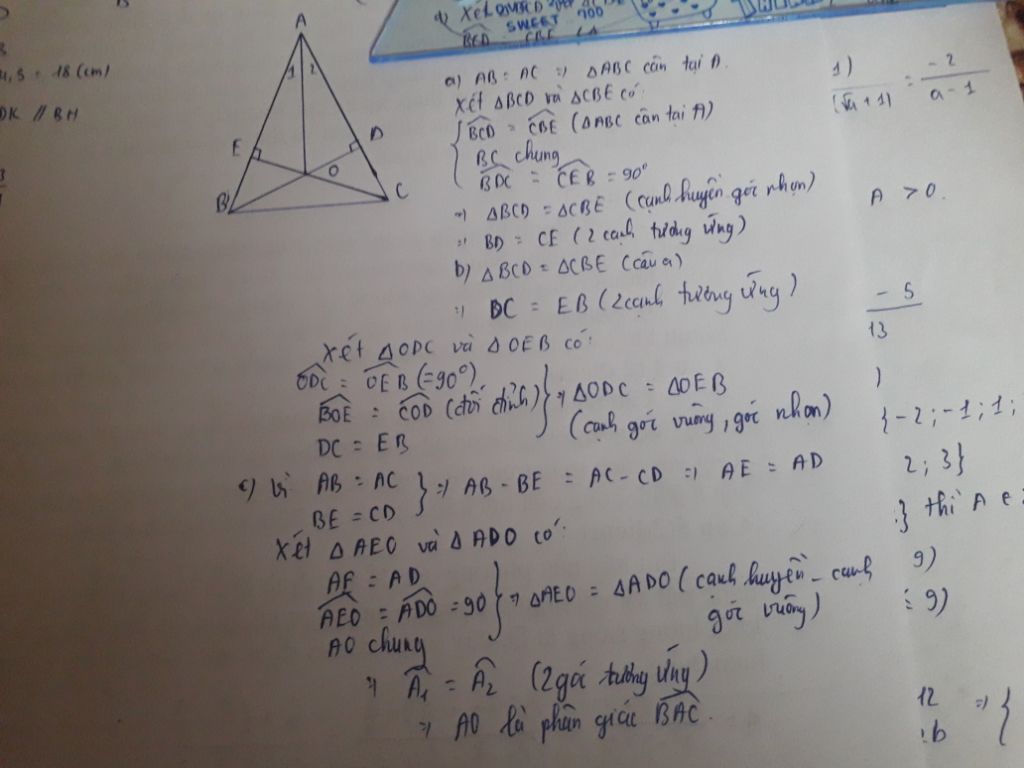 4) Xét
SWEET
700
BCD CBE
4,5 = 18 (cm)
DK // BH
A
1 2
E
D
O
B
C
a) AB = AC => ΔABC cân tại A.
Xét ΔBCD và ΔCBE có:
BCD = CBE (ΔABC cân tại A)
BC chung
BDC = CEB = 90°
=> ΔBCD = ΔCBE (cạnh huyền góc nhọn)
=> BD = CE (2 cạnh tương ứng)
b) ΔBCD = ΔCBE (câu a)
=> DC = EB (2 cạnh tương ứng)
Xét ΔODC và ΔOEB có:
ODC = OEB (=90°)
BOE = COD (đối đỉnh)
DC = EB
=> ΔODC = ΔOEB
(cạnh góc vuông, góc nhọn)
c) Vì AB = AC
BE = CD
=> AB - BE = AC - CD => AE = AD
Xét ΔAEO và ΔADO có:
AE = AD
AEO = ADO = 90
AO chung
=> ΔAEO = ΔADO (cạnh huyền - cạnh
góc vuông)
=> A1 = A2 (2 góc tương ứng)
=> AO là phân giác BAC.
1)
(√a + 1) = -2
a - 1
A > 0.
-5
13
)
{-2; -1; 1;
2; 3}
} thì A ∈
9)
: 9)
12 => {
:b